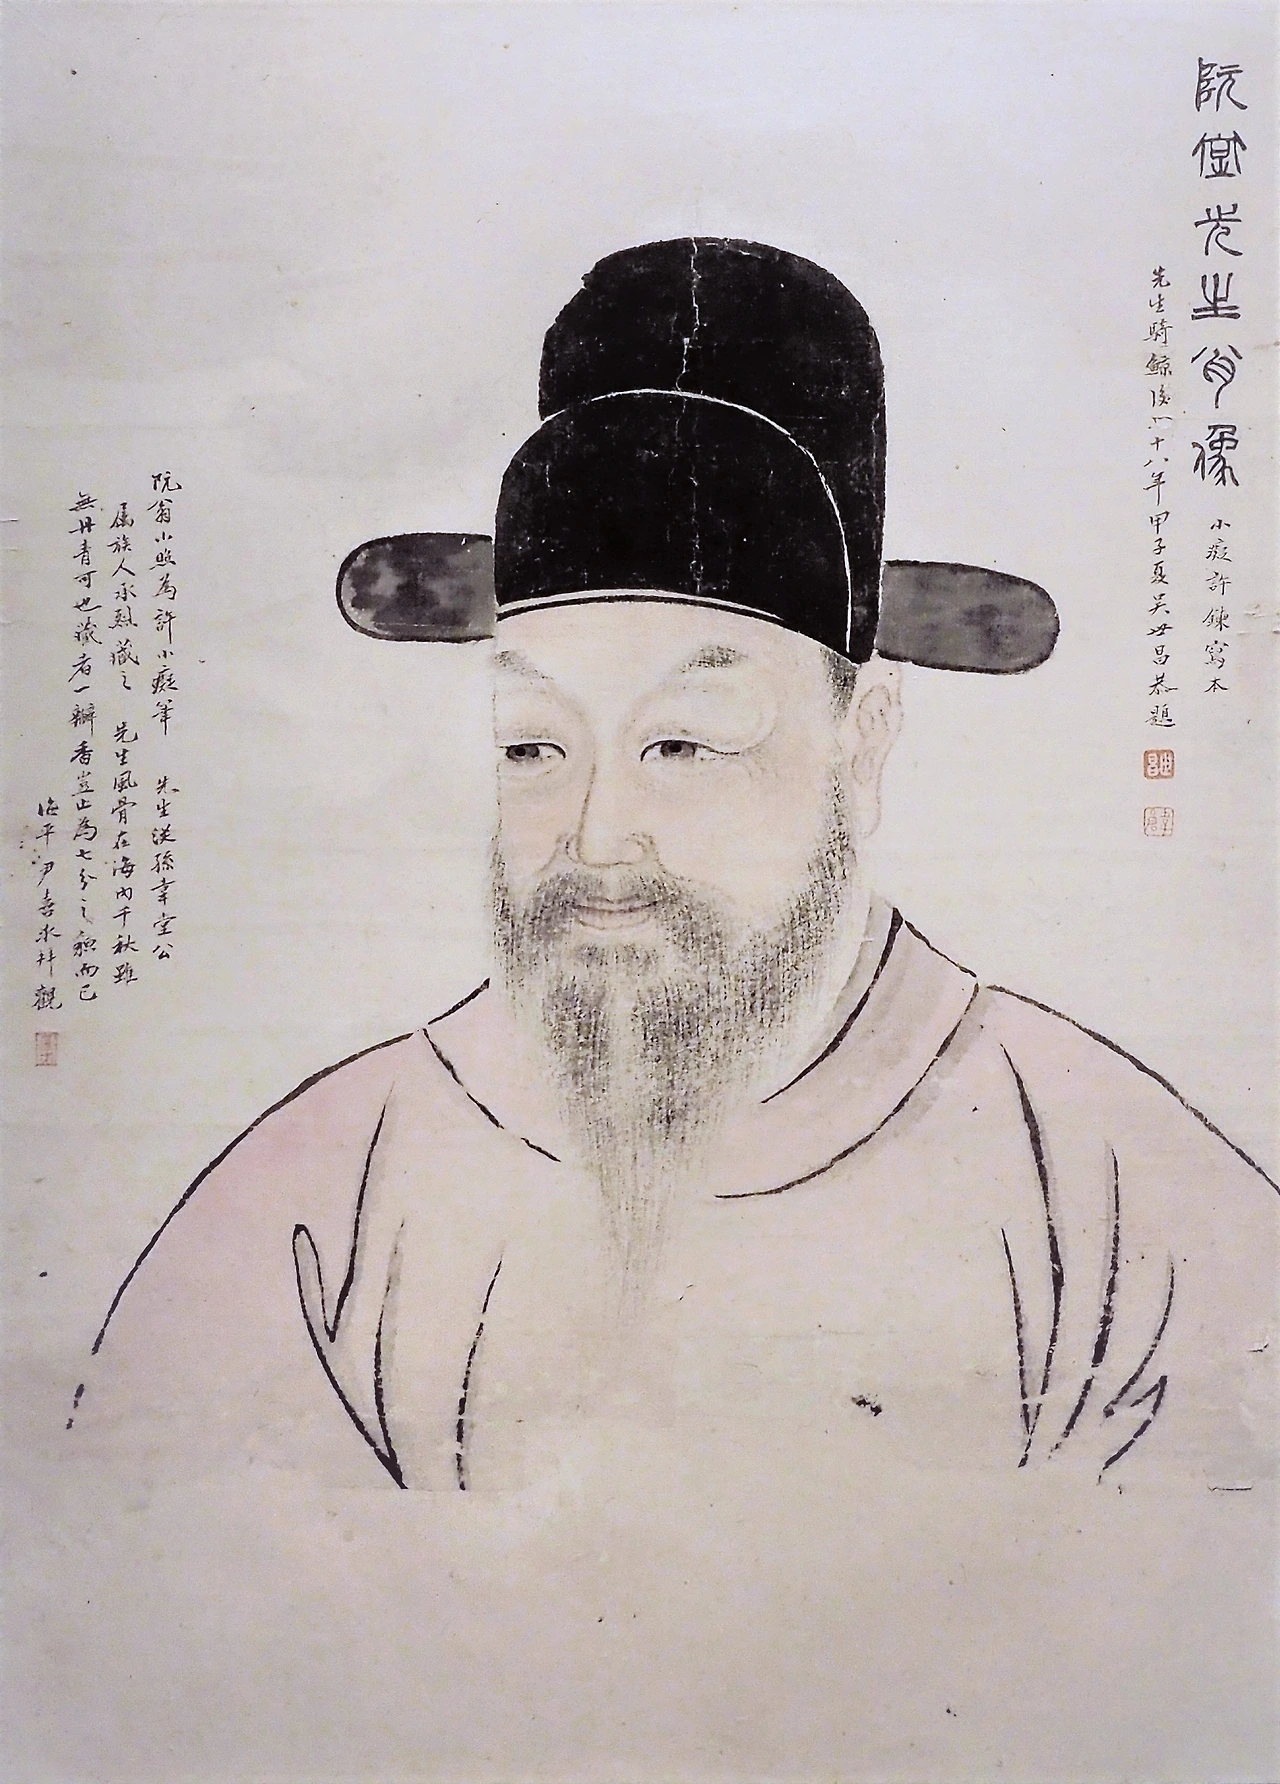 阮堂先生肖像
小癡許鍊寫本
先生騎鯨後六十八年甲子夏吳世昌恭題
世昌
阮翁小照為許小癡筆 先生從孫韋堂公
属族人承烈藏之 先生風骨在海內千秋雖
無丹青可也藏者一瓣香豈止為七分之貌而已
海平尹喜求拜觀